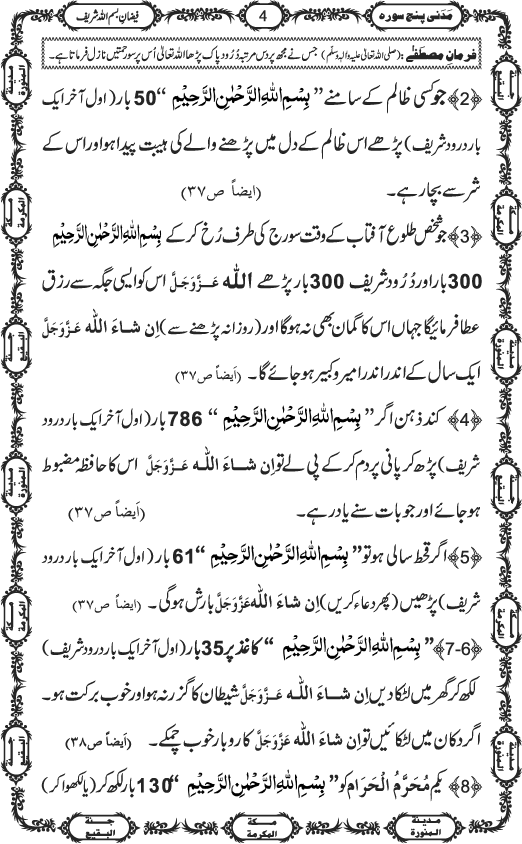 مَدَنی پنج سورہ
4
فیضانِ بسم اللہ شریف
فرمانِ مصطفےٰ : (صلی اللہ تعالیٰ علیہ والہٖ وسلّم) جس نے مجھ پر دس مرتبہ دُرُود پاک پڑھا اللہ تعالیٰ اُس پر سو رحمتیں نازل فرماتا ہے۔
﴿2﴾ جو کسی ظالم کے سامنے ” بِسْمِ اللّٰهِ الرَّحْمٰنِ الرَّحِيْمِ “50 بار (اول آخر ایک
بار درود شریف) پڑھے اس ظالم کے دل میں پڑھنے والے کی ہیبت پیدا ہو اور اس کے
شر سے بچا رہے۔ (ایضاً ص۳۷)
﴿3﴾ جو شخص طلوع آفتاب کے وقت سورج کی طرف رُخ کر کے بِسْمِ اللّٰهِ الرَّحْمٰنِ الرَّحِيْمِ
300 بار اور دُرُود شریف 300 بار پڑھے اللّٰہ عَزَّوَجَلَّ اس کو ایسی جگہ سے رزق
عطا فرمائیگا جہاں اس کا گمان بھی نہ ہوگا اور (روزانہ پڑھنے سے) اِن شاءَ اللّٰہ عَزَّوَجَلَّ
ایک سال کے اندر اندر امیر و کبیر ہو جائے گا۔ (اَیضاً ص۳۷)
﴿4﴾ کند ذہن اگر ” بِسْمِ اللّٰهِ الرَّحْمٰنِ الرَّحِيْمِ “ 786 بار (اول آخر ایک بار درود
شریف) پڑھ کر پانی پر دم کر کے پی لے تو اِن شاءَ اللّٰہ عَزَّوَجَلَّ اس کا حافظہ مضبوط
ہو جائے اور جو بات سنے یاد رہے۔ (اَیضاً ص۳۷)
﴿5﴾ اگر قحط سالی ہو تو ” بِسْمِ اللّٰهِ الرَّحْمٰنِ الرَّحِيْمِ “61 بار (اول آخر ایک بار درود
شریف) پڑھیں (پھر دعاء کریں) اِن شاءَ اللّٰہ عَزَّوَجَلَّ بارش ہوگی۔ (ایضاً ص۳۷)
﴿7-6﴾ ” بِسْمِ اللّٰهِ الرَّحْمٰنِ الرَّحِيْمِ “ کاغذ پر 35 بار (اول آخر ایک بار درود شریف)
لکھ کر گھر میں لٹکا دیں اِن شاءَ اللّٰہ عَزَّوَجَلَّ شیطان کا گزر نہ ہو اور خوب برکت ہو۔
اگر دکان میں لٹکائیں تو اِن شاءَ اللّٰہ عَزَّوَجَلَّ کاروبار خوب چمکے۔ (اَیضاً ص۳۸)
﴿8﴾ یکم مُحَرَّمُ الْحَرَام کو ” بِسْمِ اللّٰهِ الرَّحْمٰنِ الرَّحِيْمِ “130 بار لکھ کر (یا لکھوا کر)
جنۃ البقیع
مدینۃ المنورۃ
مکۃ المکرمۃ
مدینۃ المنورۃ
جنۃ البقیع
مکۃ المکرمۃ
جنۃ البقیع
مدینۃ المنورۃ
مدینۃ المنورۃ
مکۃ المکرمۃ
جنۃ البقیع
مدینۃ المنورۃ
مکۃ المکرمۃ
جنۃ البقیع
مدینۃ المنورۃ
مکۃ المکرمۃ
جنۃ البقیع